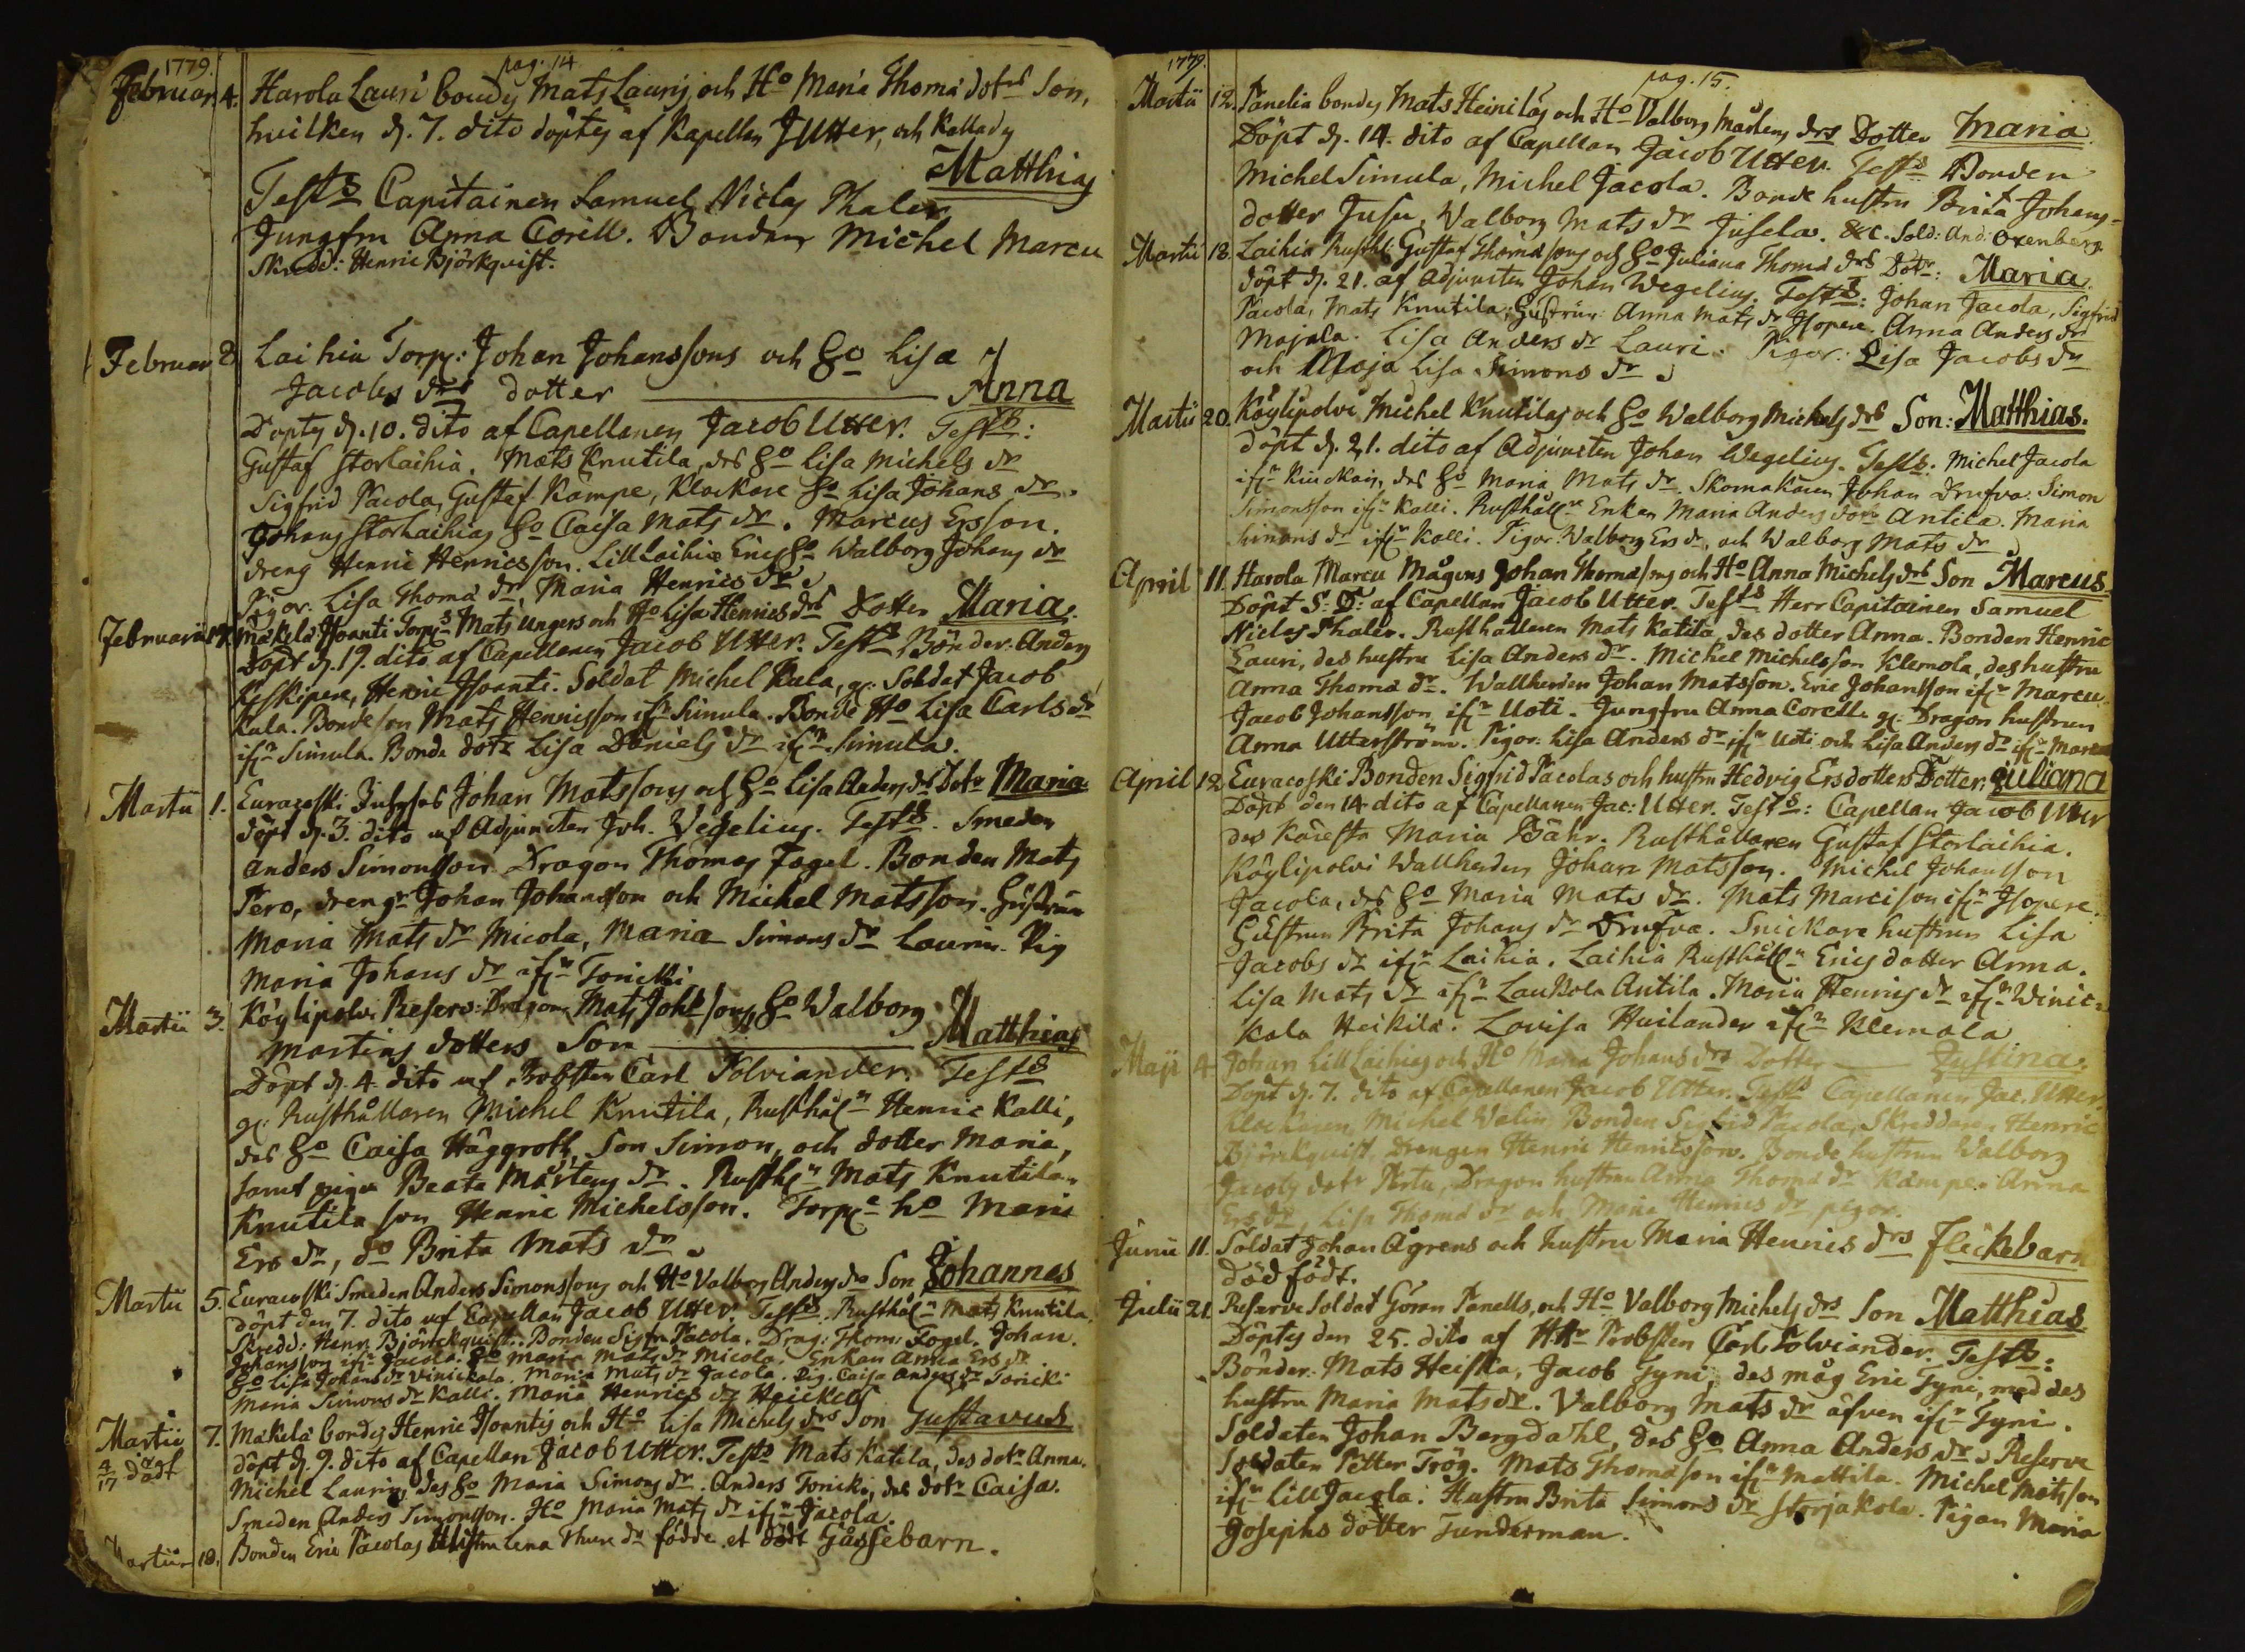 1779.
pag. 14
Februar. 4. Harola Lauri bondes Mats Lauris och Ho Maria Thomæ dotrs Son,
hvilken d. 7. dito döptes af Kapellan J Utter, och Kallades
Matthias
Tests Capitainen Samuel Niclas Thaler
Jungfru Anna Corell. Bonden Michel Marcu
Skredd: Henric Björkqvist.
Februar 8 Laihia Torp: Johan Johanssons och Ho Lisa
Jacobs drs dotter Anna
Döptes d. 10. dito af Capellanen Jacob Utter. Tests:
Gustaf Storlaihia. Mats Knutila, des Ho Lisa Michels dr
Sigfrid Pacola, Gustaf Kämpe, Klockare Ho Lisa Johans dr.
Johans Storlaihias Ho Caisa Mats dr. Marcus Ersson.
dreng Henric Henricsson. Lill Laihia Erics Ho Walborg Johans dr
Pigor. Lisa Thomæ dr Maria Henrics dr
Februarii Mäkelä Isoanti Torps Mats Ungers och Ho Lisa Henrics drs Dotter Maria.
Döpt d. 19. dito af Capellanen Jacob Utter. Tests Bönder: Anders
Keskipere, Henric Isoanti. Soldat Michel Kula, g. Soldat Jacob
Kula. Bonde son Mats Henricsson ifn Simula. Bonde Ho Lisa Carls dr
ifn Simula. Bonde dotr Lisa Daniels dr ifn Simula.
Martii 1. Euracoski Johan Matssons och Ho Lisa Anders drs Dotr Maria
döpt d. 3. dito af Adjuncten Joh. Wegelius. Tests. Smeden
Anders Simonsson Dragon Thomas Fogel. Bonden Mats
Pero, drengr Johan Johansson och Michel Matsson. Hustrun
Maria Mats dr Micola, Maria Simons dr Laurin. Pig
Maria Johans dr ifn Toricki
Martii 3. Köylipolvi Reserv: Dragon Mats Johssons Ho Walborg
Martins dotters Son Matthias
Döpt d. 4 dito af Probsten Carl Polviander. Tests
g: Rusthållaren Michel Knutila, Rusthåln Henric Kalli,
des Ho Caisa Häggroth, Son Simon, och dotter Maria,
samt pigan Beata Mårtens dr. Rusthn Mats Knutila.
Knutila son Henric Michelsson. Torps ho Maria
Ers dr, do Brita Mats dr
Martii 5. Euracoski Smeden Anders Simonssons och Ho Valborg Anders drs Son Johannes
döpt den 7. dito af Capellan Jacob Utter. Tests Rusthåln Mats Knutila.
Skredd: Henr. Björckquist. Bonden Sigfr. Pacola. Drag. Thom. Fogel. Johan
Johansson ifn Jacola. Ho Maria Mats dr Micola. Enkan Anna Ers dr
Ho Lisa Johans dr Vinickala. Maria Mats dr Jacola. Pig. Caisa Anders dr Toricki
Maria Simons dr Kalli. Maria Henrics dr Heickell
Martii 7. Mäkelä bondes Henric Isoantis och Ho Lisa Michels drs Son Gustavus
4/17 död
döpt d. 9. dito af Capellan Jacob Utter. Tests Mats Katila, des dotr Anna.
Michel Laurin, des Ho Maria Simons dr. Anders Toricki, des dotr Caisa.
Smeden Anders Simonsson. Ho Maria Mats dr ifn Jacola.
Martii 10. Bonden Eric Pacolas Hustru Lena Thure dr födde et dödt Gåssebarn.
1779.
pag. 15.
Martii 12. Panelia bondes Mats Heinilas och Ho Valborg Mårtens drs Dotter Maria
Döpt d. 14. dito af Capellan Jacob Utter. Tests Bonden
Michel Simula, Michel Jacola. Bonde hustru Brita Johans-
dotter Jusu, Walborg Mats dr Jusela. &c. Sold: And: Oxenberg.
Martii 18. Laihia Rusthl Gustaf Thomæsons och Ho Juliana Thomæ drs Dotr: Maria.
döpt d. 21. af Adjuncten Johan Wegelius. Tests: Johan Jacola, Sigfrid
Pacola, Mats Knutila; Hustrur: Anna Mats dr Isopere. Anna Anders dr
Majala. Lisa Anders dr Lauri. Pigor: Lisa Jacobs dr
och Maja Lisa Simons dr
Martii 20. Köylipolvi Michel Knutilas och Ho Walborg Michels drs Son: Matthias.
döpt d. 21. dito af Adjuncten Johan Wegelius. Tests: Michel Jacola
ifn des Ho Maria Mats dr. Skomakaren Johan Drufva. Simon
Simonsson ifn Kalli. Rusthålln Enkan Maria Anders dotr Antila. Maria
Simons dr ifn Kalli. Pigor. Walborg Ers dr, och Walborg Mats dr
April 11. Harola Marcu Mågens Johan Thomæsons och Ho Anna Michels drs Son Marcus
Döpt S: D: af Capellan Jacob Utter. Tests Herr Capitainen Samuel
Niclas Thaler. Rusthållaren Mats Katila, des dotter Anna. Bonden Henric
Lauri, des hustru Lisa Anders dr. Michel Michelsson Klemola, des hustru
Anna Thomæ dr. Wallherden Johan Matsson. Eric Johansson ifn Marcu.
Jacob Johansson ifn Uoti. Jungfru Anna Corell. g: Dragon hustrun
Anna Utterström. Pigor: Lisa Anders dr ifn Uoti och Lisa Anders dr ifn Marcu
April 12 Euracoski Bonden Sigfrid Pacolas och hustru Hedvig Ersdotters Dotter: Juliana
Döpt den 14 dito af Capellanen Jac: Utter. Tests: Capellan Jacob Utter
des Käresta Maria Bähr. Rusthållaren Gustaf Storlaihia.
Köylipolvi Wallherden Johan Matsson. Michel Johansson
Jacola, des Ho Maria Mats dr. Mats Marcison ifn Isopere.
Hustrun Brita Johans dr Drufva. Snickare hustrun Lisa
Jacobs dr ifn Laihia. Laihia Rusthålln Erics dotter Anna.
Lisa Mats dr ifn Laukola Antila. Maria Henrics dr ifn Winic-
kala Heikilä. Lovisa Huilander ifn Klemola
Maji 4 Johan Lill Laihias och Ho Maria Johans drs Dotter Justina.
Döpt d. 7. dito af Capellanen Jacob Utter. Tests Capellanen Jac. Utter.
Klockaren, Michel Valin, Bonden Sigfrid Pacola, Skreddaren Henric
Björckquist, Drengen Henric Henricsson. Bonde hustrun Walborg
Jacobs dotr Pertu, Dragon hustrun Anna Thomæ dr Kämpe. Anna
Ers dr, Lisa Thomæ dr och Maria Henrics dr pigor.
Junii 11. Soldat Johan Ågrens och hustru Maria Henrics drs Flickebarn
död födt.
Julii 21. Reserve Soldat Göran Panells, och Ho Valborg Michels drs Son Matthias
Döptes den 25. dito af H.Hr Probsten Carl Polviander. Tests:
Bönder: Mats Heiska, Jacob Tyni, des måg Eric Tyni, med des
hustru Maria Mats dr. Valborg Mats dr äfven ifn Tyni.
Soldaten Johan Bergdahl, des Ho Anna Anders dr. Reserve
Soldaten Petter Trög. Mats Thomæson ifn Mattila. Michel Matsson
ifn Lill Jacola. Hustru Brita Simons dr Storjakola. Pigan Maria
Josephs dotter Tunderman.